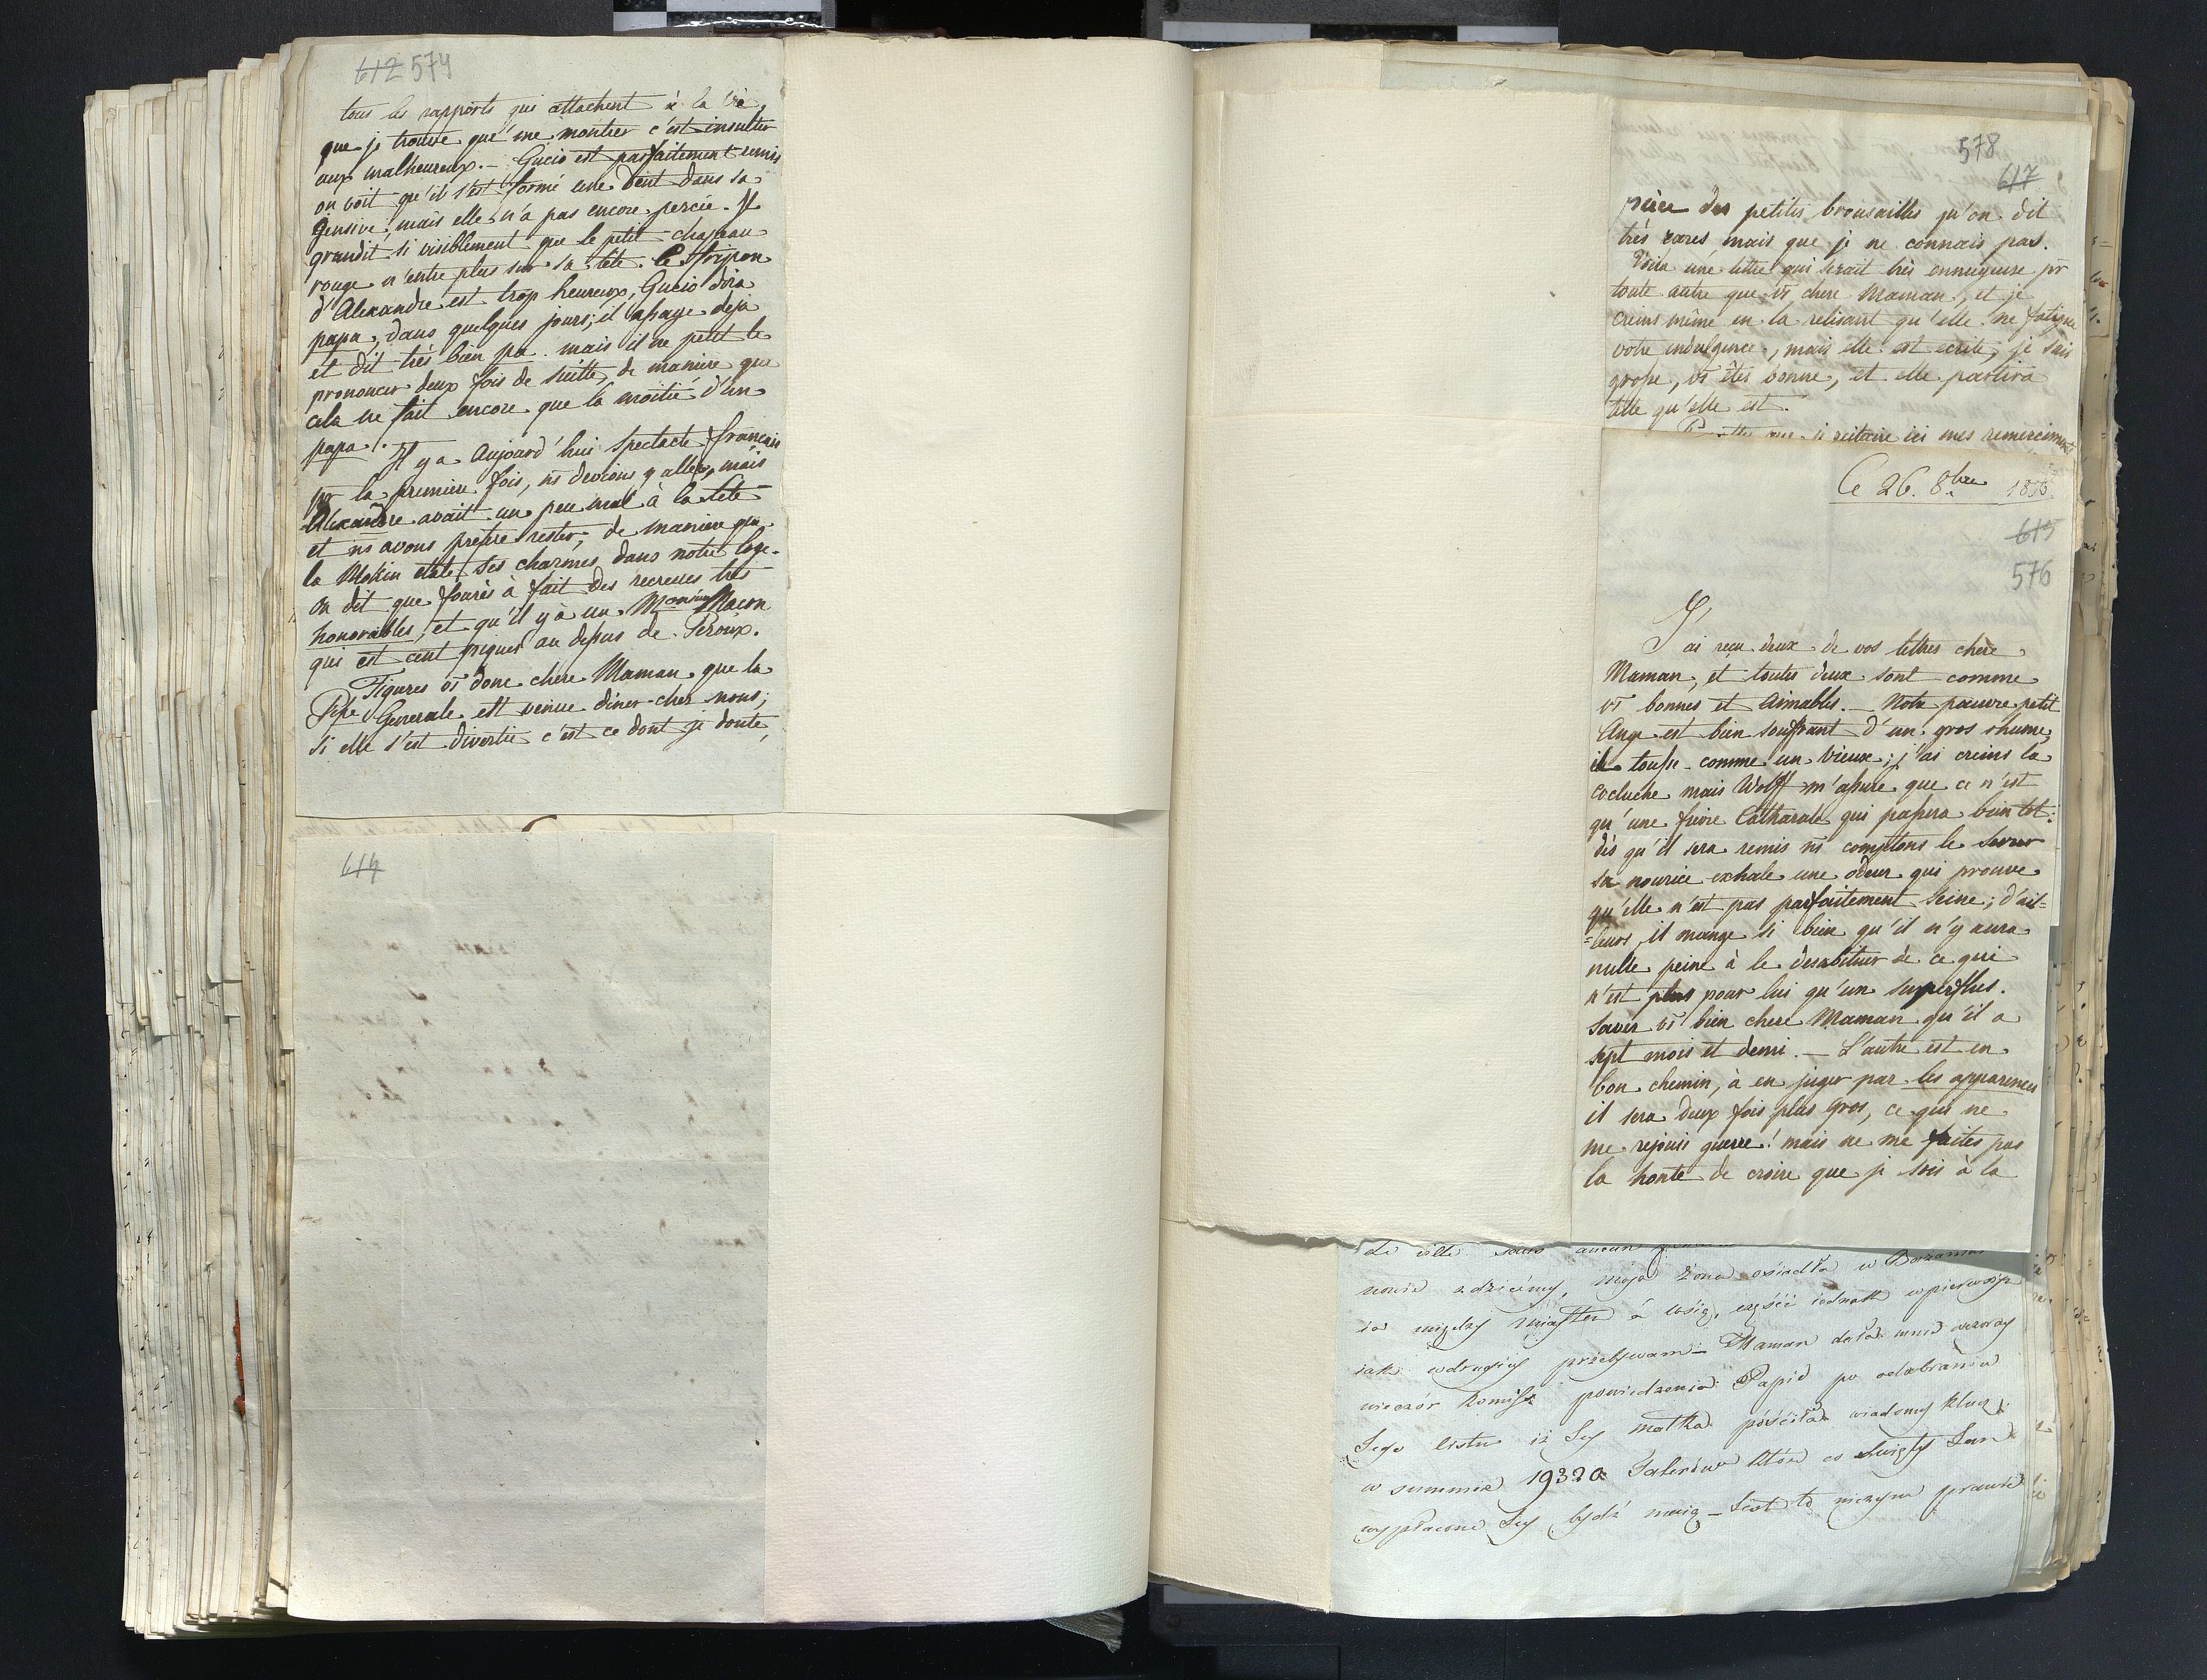 612 574
tous les rapports qui attachent à la vie,
que je trouve que me montrer c'est insulter
aux malheureux. – Gucio est parfaitement remis
on voit qu'il s'est formé une dent dans sa
gensive! mais elle n'a pas encore percée. Il
grandit si visiblement que le petit chapeau
rouge n'entre plus sur sa tête. Le fripon
d'Alexandre est trop heureux, Gucio dira
papa, dans quelques jours; il essaye deja
et dit très bien pa. mais il ne peut le
prononcer deux fois de suitte, de maniere que
cela ne fait encore que la moitié d'un
papa!. Il y a Aujourd'hui Spectacle français
pr la premiere fois, ns devions y aller, mais
Alexandre avait un peu mal à la tête
et ns avons preferé rester, de maniere que
la Mokin etale ses charmes dans notre loge.
on dit que fourès à fait des recrues très
honorables, et qu'il y à un Monsieur Macon
qui est cent piques au dessus de Peroux.
Figures vs donc chere Maman que la
Psse Generale est venue diner chez nous;
Si elle s'est divertie c'est ce dont je doute,
614
578
617
pièce des petites brousailles qu'on dit
très rares mais que je ne connais pas.
Voila une lettre qui serait très ennuyeuse pr
toute autre que vs chere Maman, et je
creins même en la relisant qu'elle ne fatigue
votre indulgence, mais elle est ecrite, je suis
grosse, vs êtes bonne, et elle partira
telle qu'elle est.
ici mes remerciments
Ce 26. 8bre 1806
615
576
J'ai reçu deux de vos lettres chère
Maman, et toutes deux sont comme
vs bonnes et Aimables. – Notre pauvre petit
Ange est bien souffrant d'un gros rhume,
il tousse comme un vieux; j'ai creins la
cocluche mais Wolff m'assure que ce n'est
qu'une fievre Catharale qui passera bientot:
dès qu'il sera remis ns comptons le sevrer
sa nourice exhale une odeur qui prouve
qu'elle n'est pas parfaitement seine; d'ail=
=leurs, il mange si bien qu'il n'y aura
nulle peine à le desabituer de ce qui
n'est plus pour lui qu'un superflus.
Savez vs bien chere Maman qu'il a
sept mois et demi. – L'autre est en
bon chemin, à en juger par les apparences
il sera deux fois plus gros, ce qui ne
me rejouis guerre! mais ne me faites pas
la honte de croire que je sois à la
aucun
moja żona osiadła w
ia między miastem a wsią, częścią iednak w pierwszy
iak w drugiey przebywam – Maman dała mnie wczoray
wieczór powiedzenia Papie po odebraniu
Jego listu iż Jey matka wiadomy klucz
w summie 19320 Talerów które co Święty Jan
wypłacone Jey bydź maią – Jest to niczym prawie